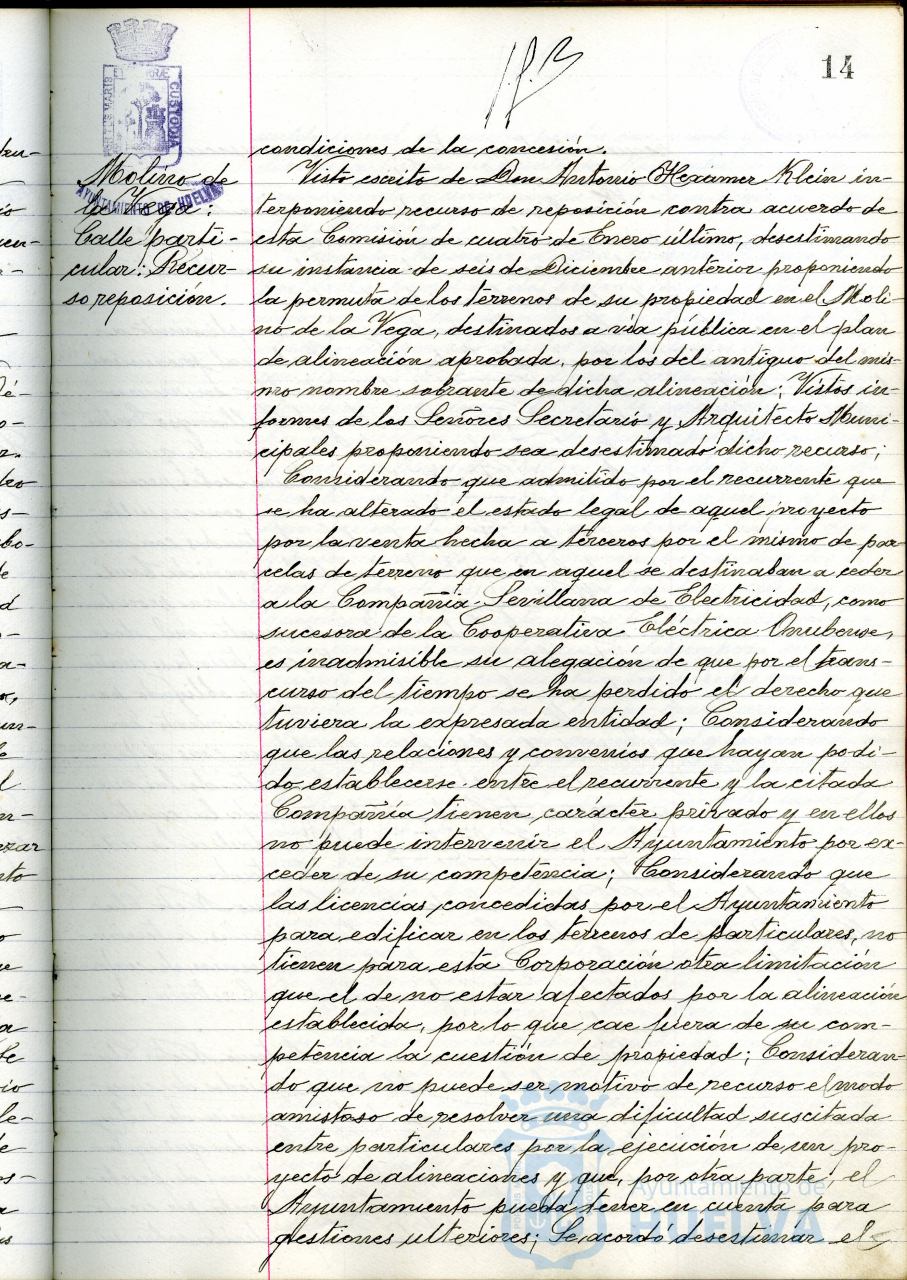 14
condiciones de la concesión.
Molino de
la Vega:
Calle parti-
cular: Recur-
so reposición.
AYUNTAMIENTO DE HUELVA
CUSTODIA
Visto escrito de Don Antonio Hexamer Klein in-
terponiendo recurso de reposición contra acuerdo de
esta Comisión de cuatro de Enero último, desestimando
su instancia de seis de Diciembre anterior proponiendo
la permuta de los terrenos de su propiedad en el Moli-
no de la Vega, destinados a vía pública en el plan
de alineación aprobada, por los del antiguo del mis-
mo nombre sobrante de dicha alineación; Vistos in-
formes de los Señores Secretario y Arquitecto Muni-
cipales proponiendo sea desestimado dicho recurso;
Considerando que admitido por el recurrente que
se ha alterado el estado legal de aquel proyecto
por la venta hecha a terceros por el mismo de par
celas de terreno que en aquel se destinaban a ceder
a la Compañia Sevillana de Electricidad, como
sucesora de la Cooperativa Eléctrica Onubense,
es inadmisible su alegación de que por el trans-
curso del tiempo se ha perdido el derecho que
tuviera la expresada entidad; Considerando
que las relaciones y convenios que hayan podi-
do establecerse entre el recurrente y la citada
Compañía tienen carácter privado y en ellos
no puede intervenir el Ayuntamiento por ex-
ceder de su competencia; Considerando que
las licencias concedidas por el Ayuntamiento
para edificar en los terrenos de particulares, no
tienen para esta Corporación otra limitación
que el de no estar afectados por la alineación
establecida, por lo que cae fuera de su com-
petencia la cuestión de propiedad; Consideran-
do que no puede ser motivo de recurso el modo
amistoso de resolver una dificultad suscitada
entre particulares por la ejecución de un pro-
yecto de alineaciones y que, por otra parte, el
Ayuntamiento pueda tener en cuenta para
gestiones ulteriores; Se acordó desestimar el
Ayuntamiento de
HUELVA